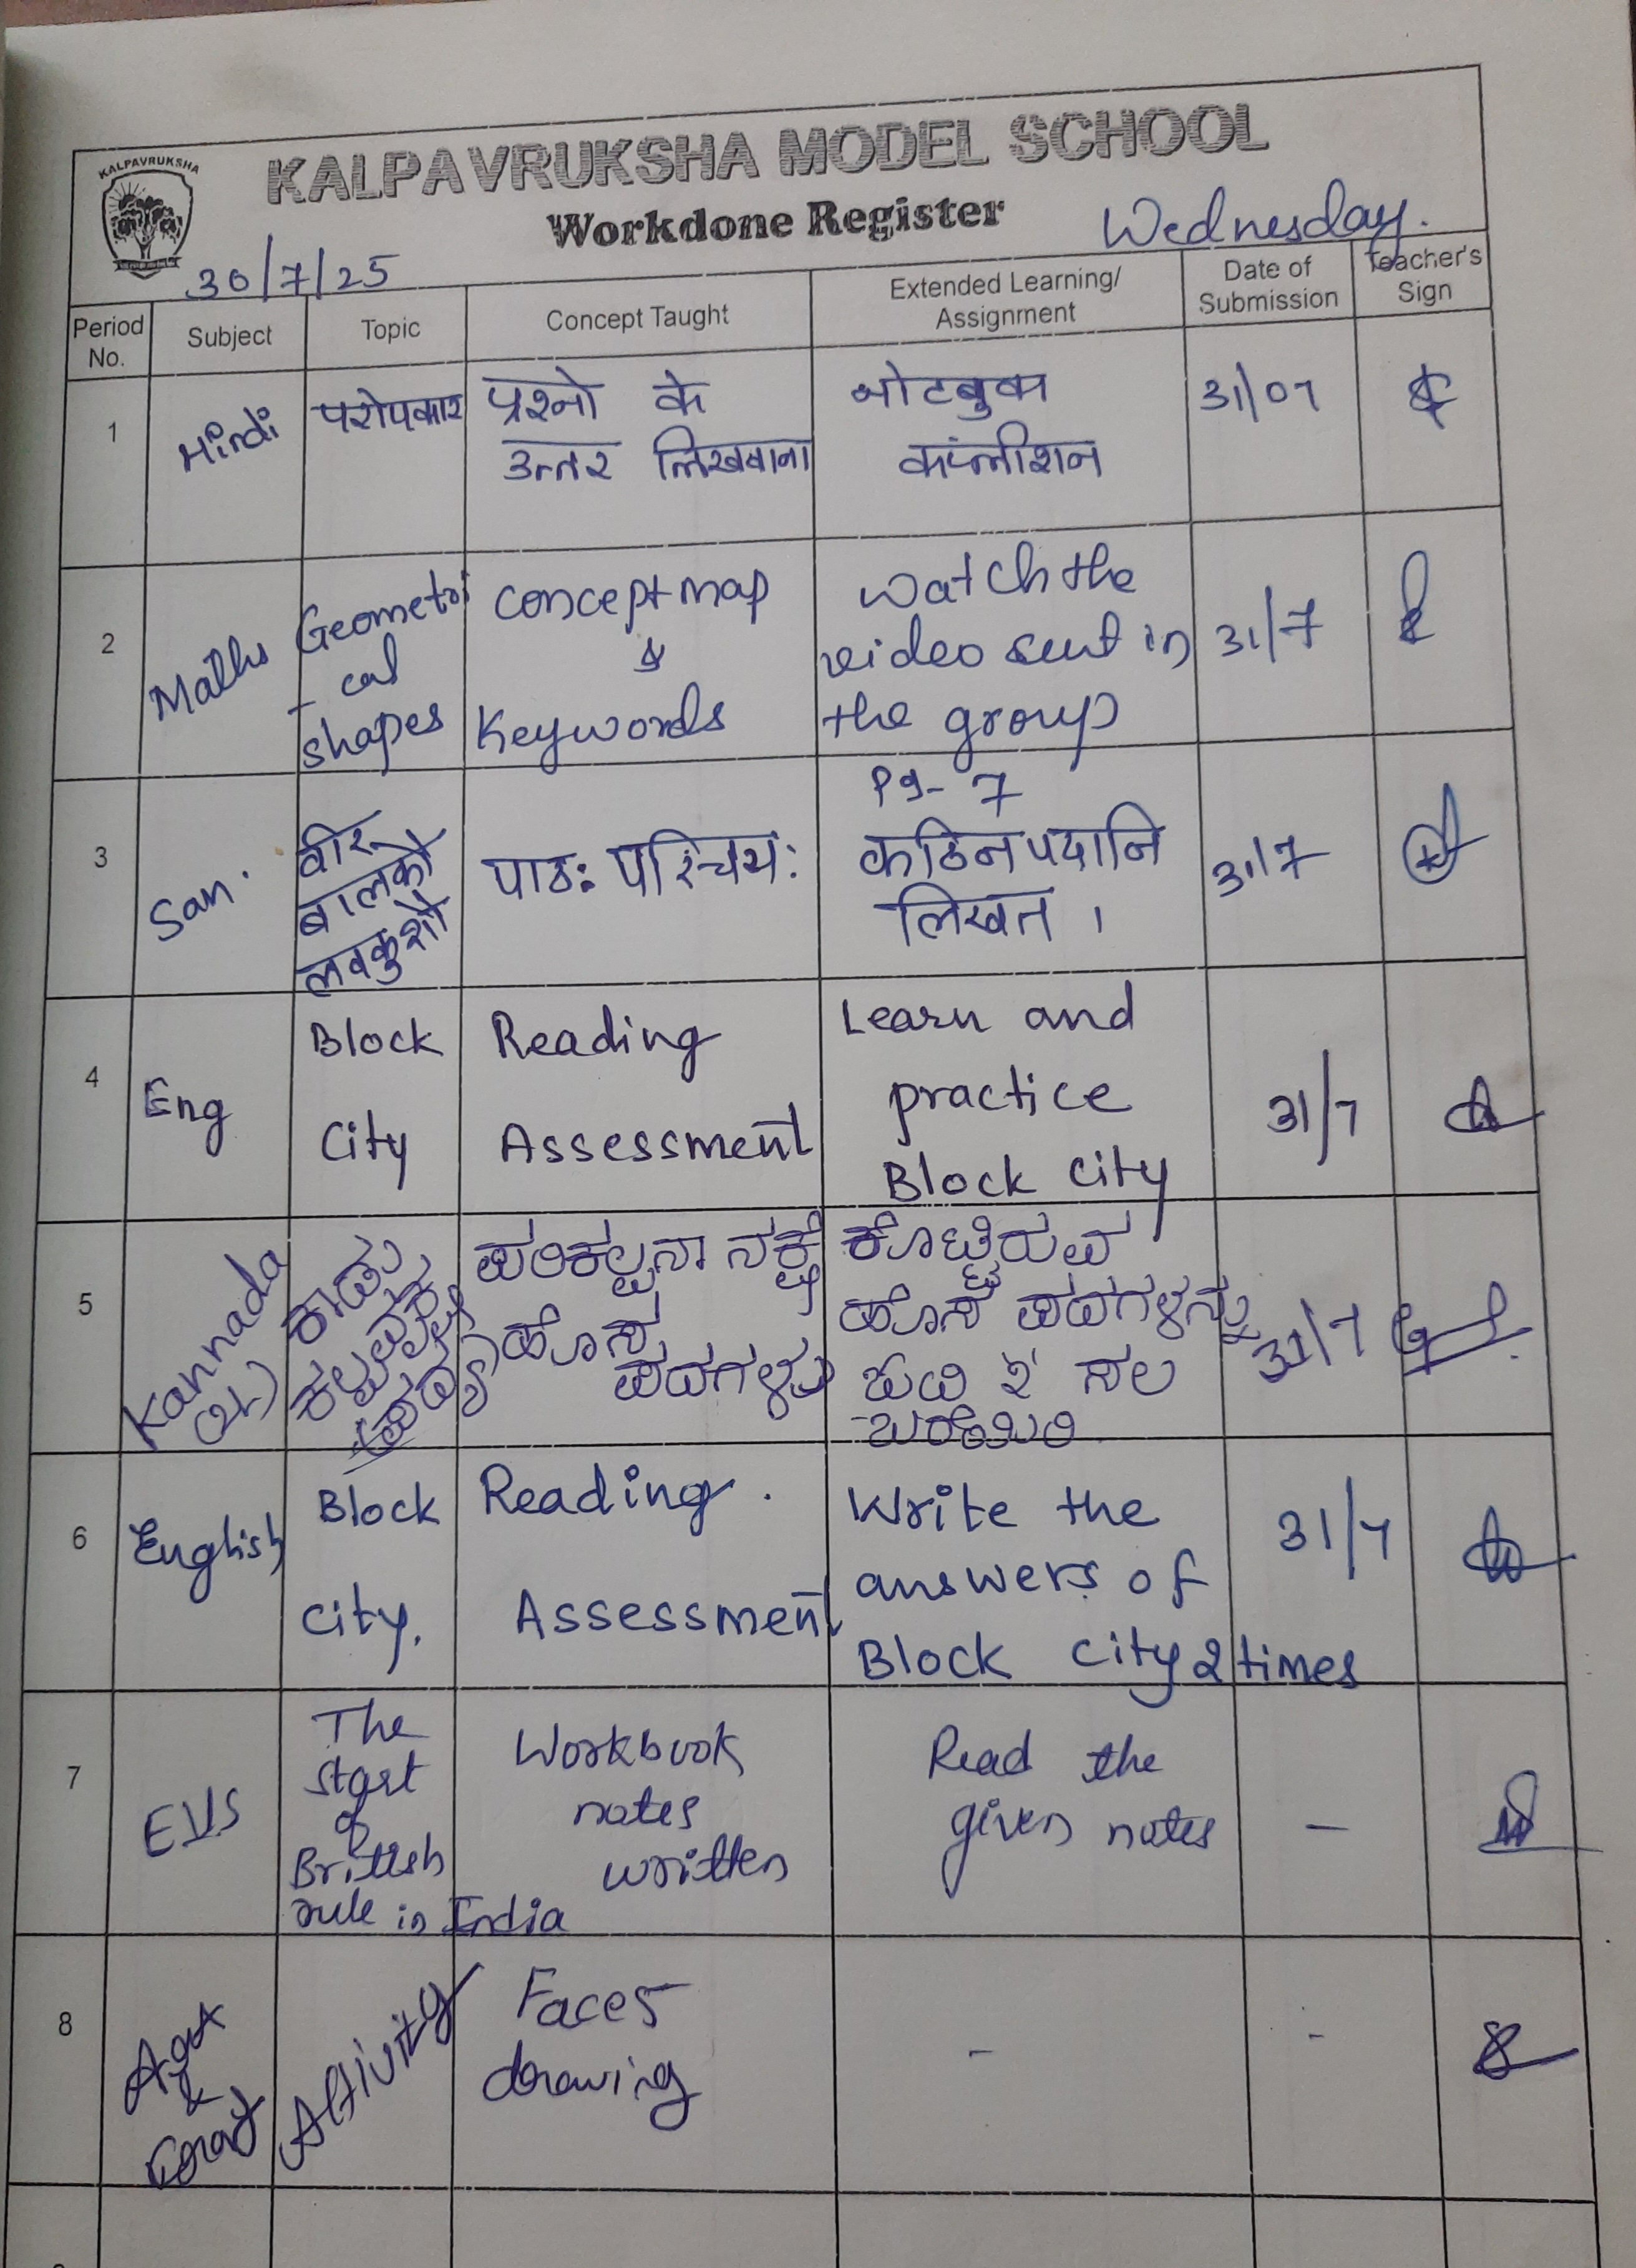 KALPAVRUKSHA
KALPAVRUKSHA MODEL SCHOOL
Workdone Register
Wednesday.
30/7/25
Period No.
Subject
Topic
Concept Taught
Extended Learning/
Assignment
Date of
Submission
Teacher's
Sign
1
Hindi
परोपकार
प्रश्नो के
उत्तर लिखवाना
नोटबुक
कंप्लीशन
31/07
2
Maths
Geometri
-cal
shapes
concept map
&
Keywords
watch the
video sent in
the group
31/7
3
San.
वीर
बालकौ
लवकुशौ
पाठः परिचयः
Pg- 7
कठिनपदानि
लिखत ।
31/7
4
Eng
Block
City
Reading
Assessment
Learn and
practice
Block city
31/7
5
Kannada
(2L)
ಕಾಡು
(ಪದ್ಯ)
ಪರಿಕಲ್ಪನಾ ನಕ್ಷೆ
ಹೊಸ
ಪದಗಳು
ಕೊಟ್ಟಿರುವ
ಹೊಸ ಪದಗಳನ್ನು
ಶುದ್ಧ ೨ ಸಲ
ಬರೆಯಿರಿ
31/7
6
English
Block
city.
Reading.
Assessment
Write the
answers of
Block city 2 times
31/7
7
EVS
The
start
of
British
rule in India
Workbook
notes
written
Read the
given notes
-
8
Art
&
Craft
Activity
Faces
drawing
-
-